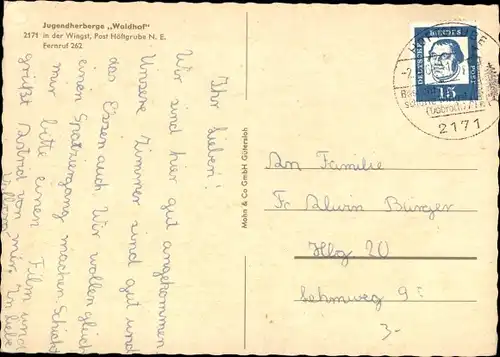 Jugendherberge „Waldhof"
2171 in der Wingst, Post Höftgrube N. E.
Fernruf 262
Ihr lieben!
Wir sind hier gut angekommen.
Unsere Zimmer sind gut und
das Essen auch. Wir wollen gleich
einen Spatziergang machen. Schickt
mir bitte einen Film und
grüßt Astrid von mir. In liebe
Mohn & Co GmbH Gütersloh
DEUTSCHE BUNDESPOST
15
2171
An Familie
Fr Alwin Bünger
Hbg 20
Lehmweg 9
3-